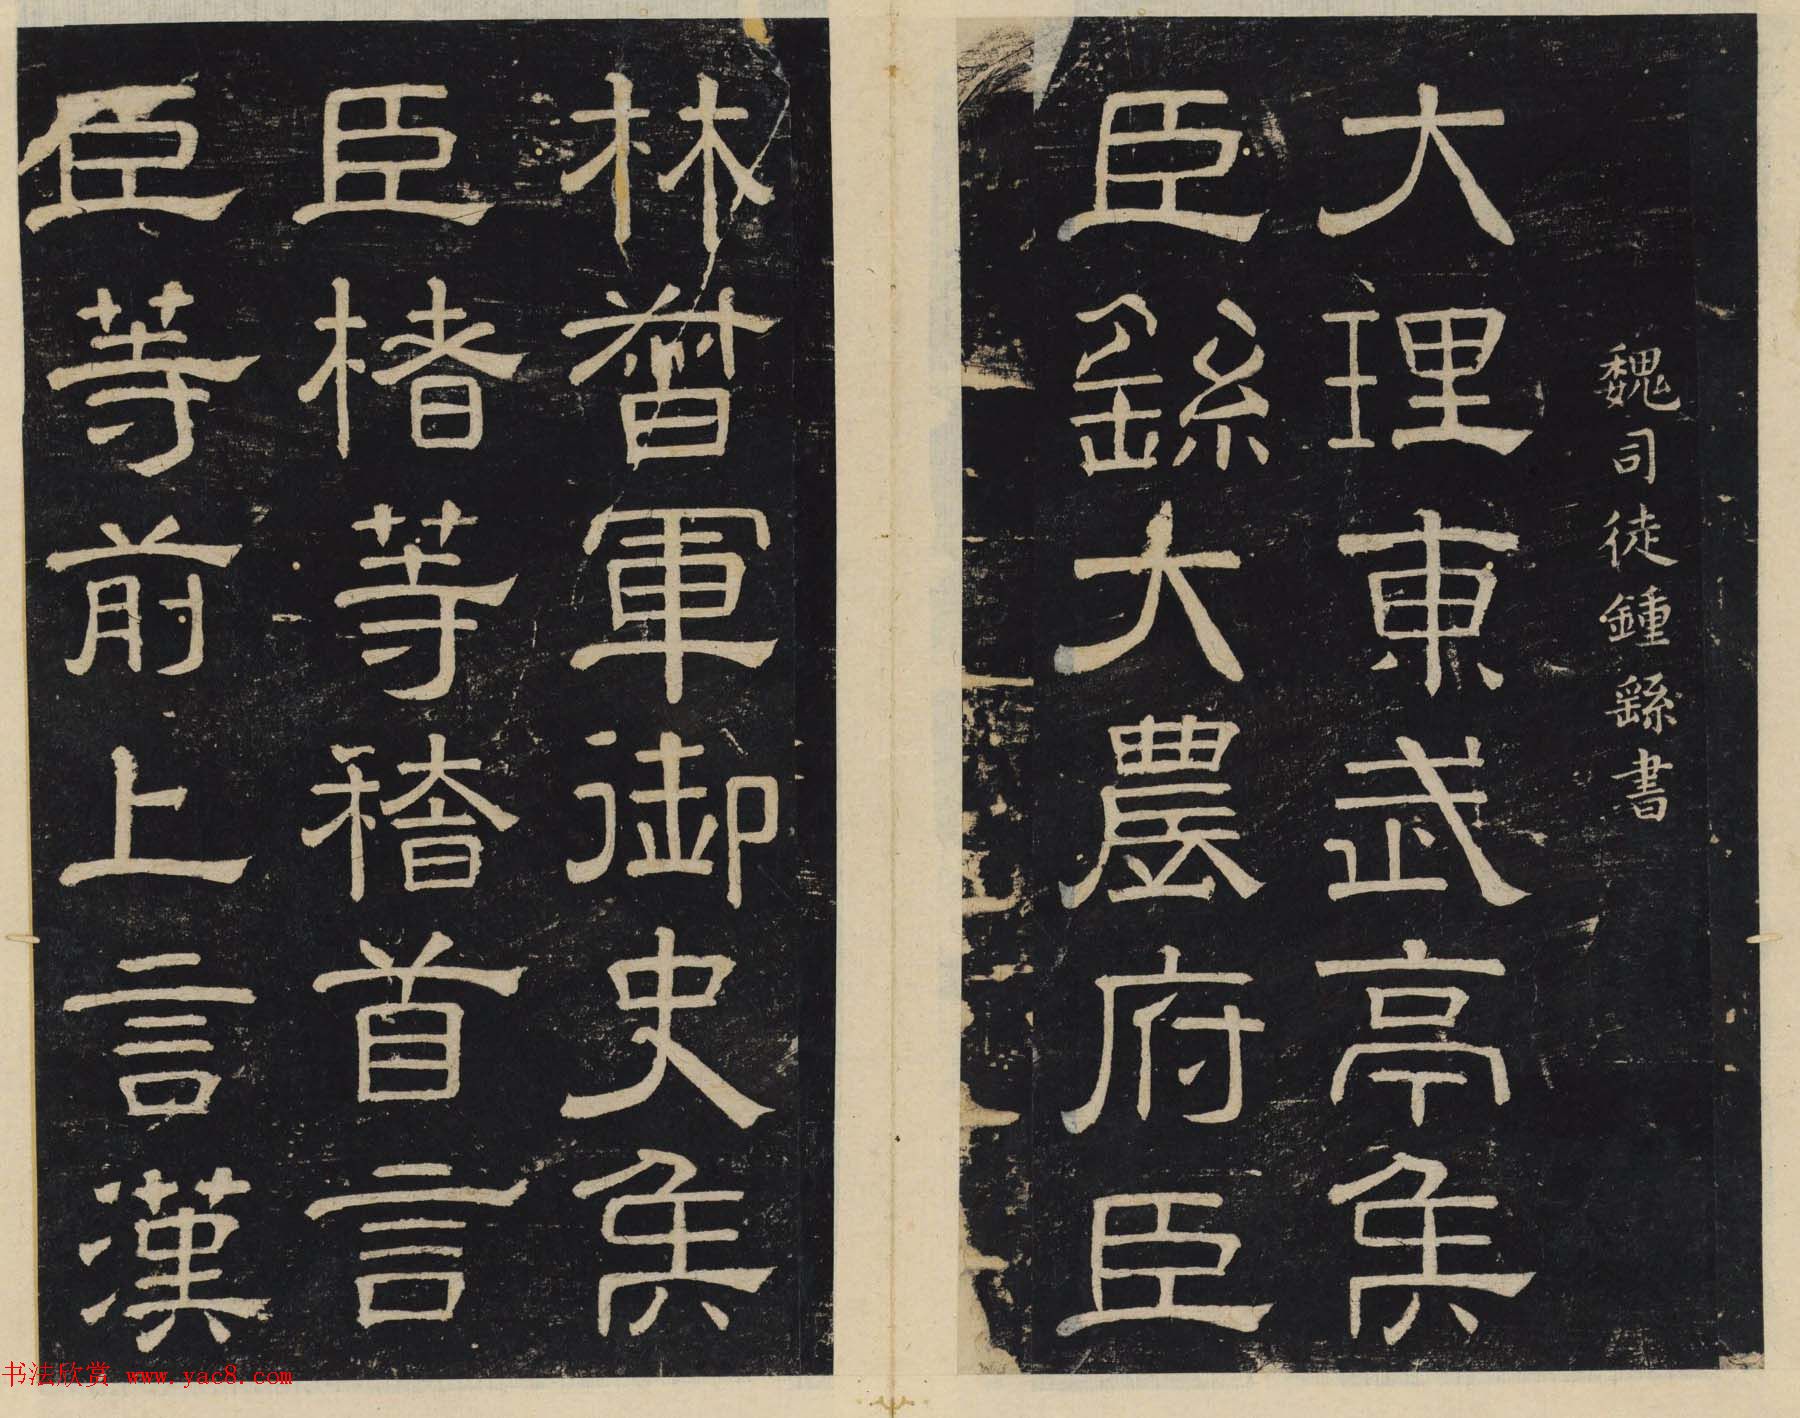 魏司徒鍾繇書
大理東武亭侯
臣繇大農府臣
林督軍御史侯
臣楮等稽首言
臣等前上言漢
书法欣赏 www.yac8.com